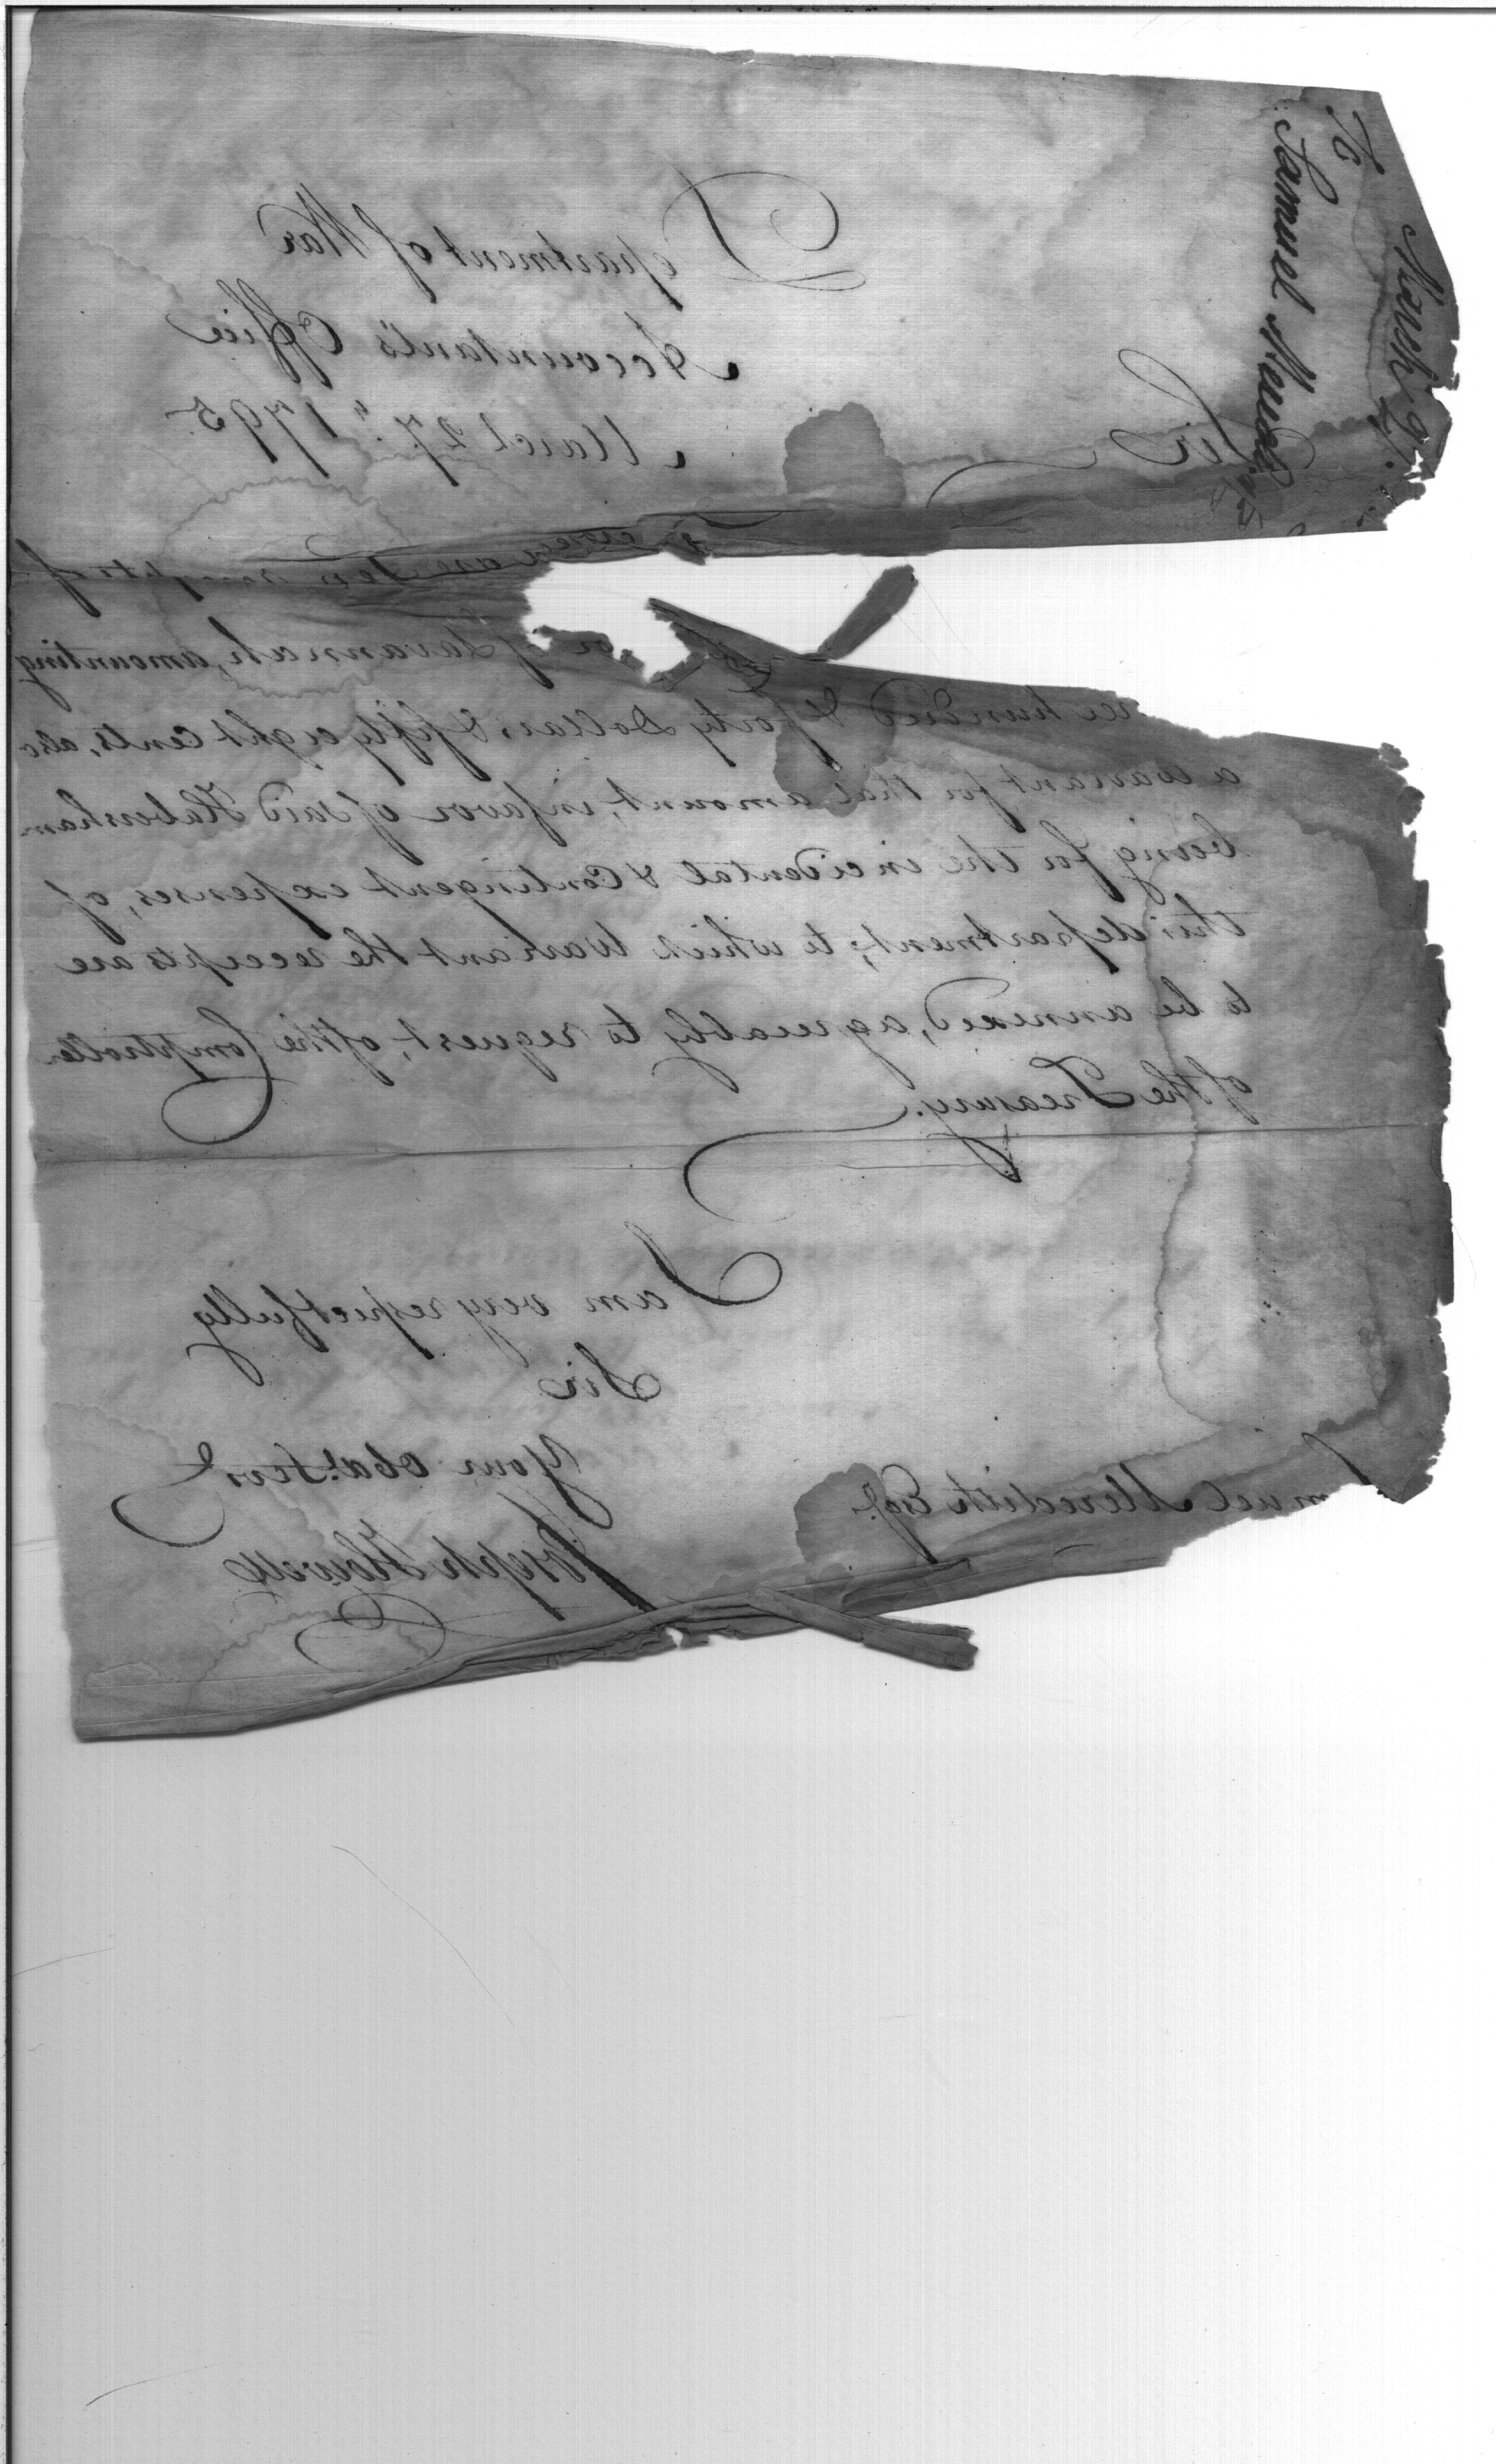 Department of War
Accountant's Office
March 27th 1795
Sir
are Ten receipts of
of Savannah, amounting
hundred & forty Dollars & fifty eight Cents, also
a warrant for that amount, in favor of said Habersham
being for the incidental & Contingent expenses, of
this department, to which Warrant the receipts are
to be annexed, agreeably to request, of the Comptroller
of the Treasury.
I am very respectfully
Sir
Your Obdt. Servt
Joseph Howell
Samuel Meredith Esqr.
To
Samuel Mered
March 27